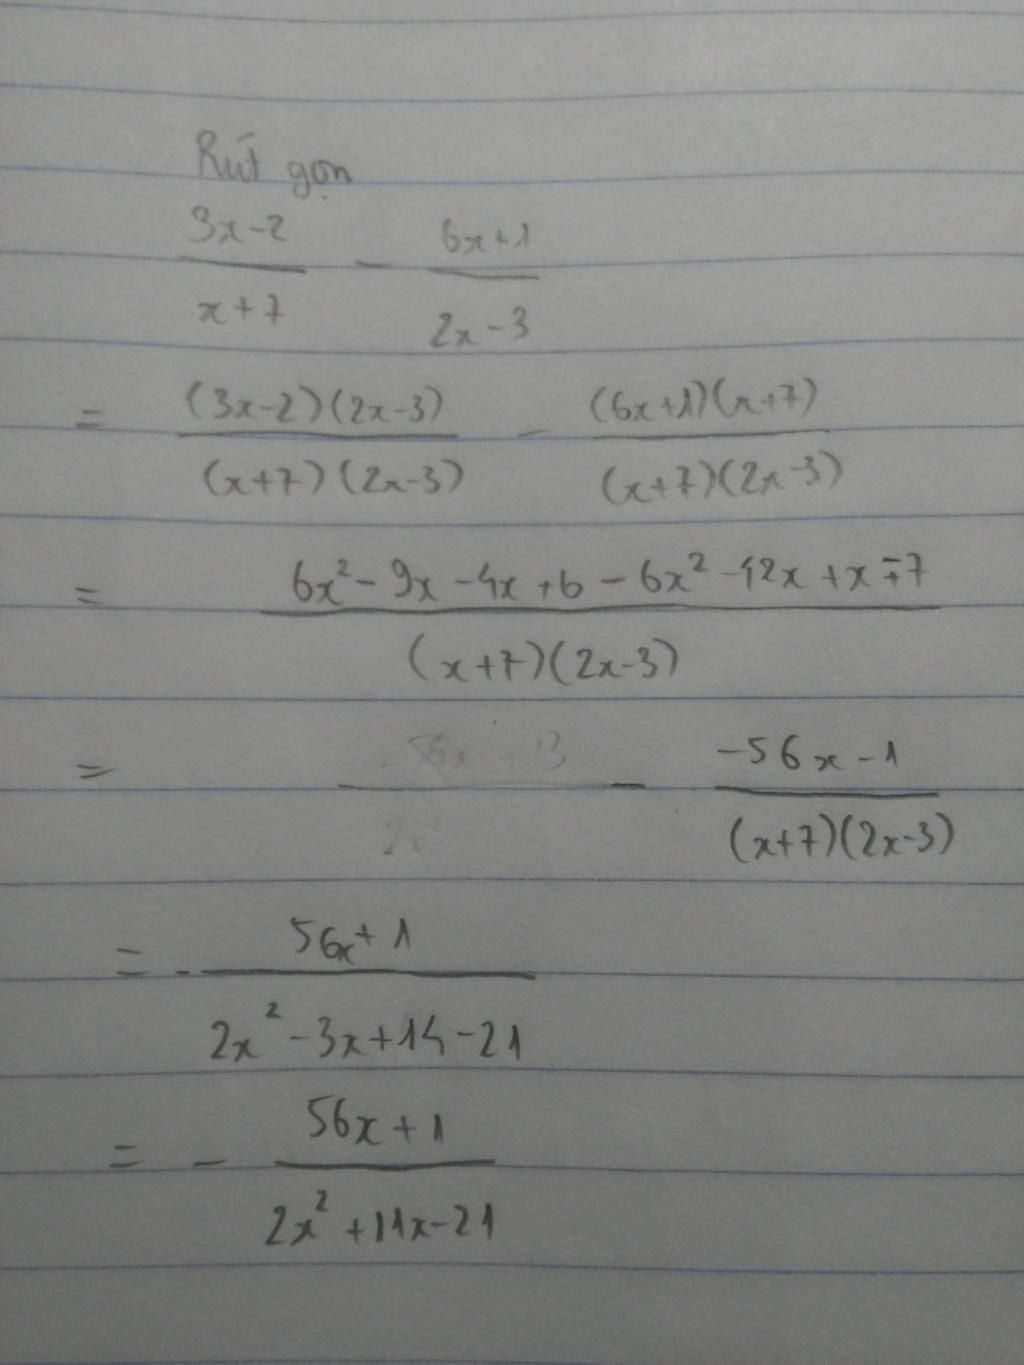 Rút gọn
3x-2 / x+7 - 6x+1 / 2x-3
= (3x-2)(2x-3) / (x+7)(2x-3) - (6x+1)(x+7) / (x+7)(2x-3)
= 6x² - 9x - 4x + 6 - 6x² - 42x + x - 7 / (x+7)(2x-3)
= - -56x - 1 / (x+7)(2x-3)
= - 56x + 1 / 2x² - 3x + 14 - 21
= - 56x + 1 / 2x² + 11x - 21